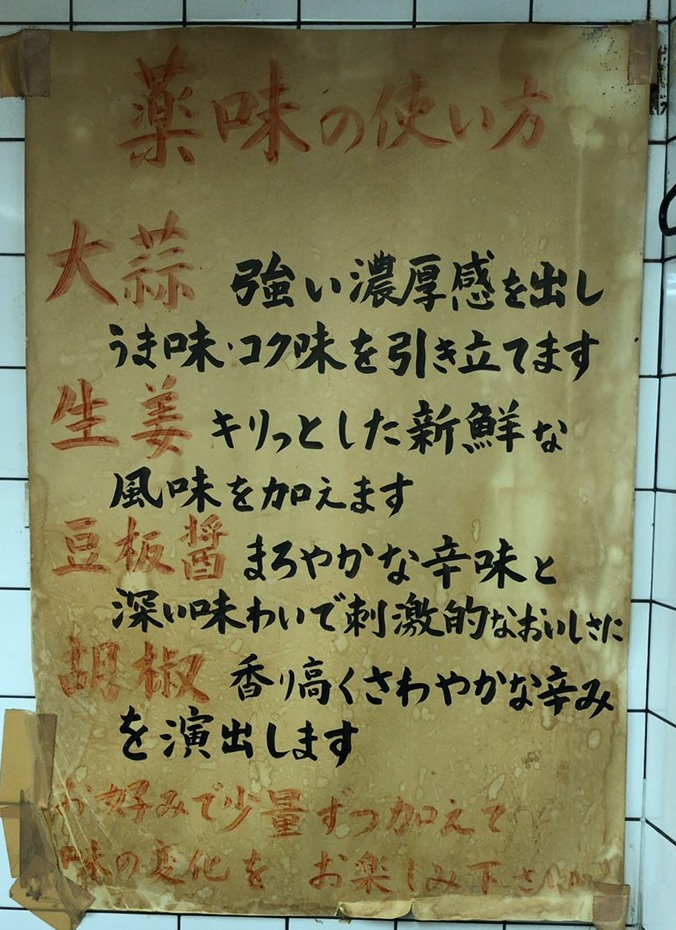 薬味の使い方
大蒜 強い濃厚感を出し
うま味・コク味を引き立てます
生姜 キリっとした新鮮な
風味を加えます
豆板醤 まろやかな辛味と
深い味わいで刺激的なおいしさに
胡椒 香り高くさわやかな辛み
を演出します
お好みで少量ずつ加えて
味の変化を お楽しみ下さい